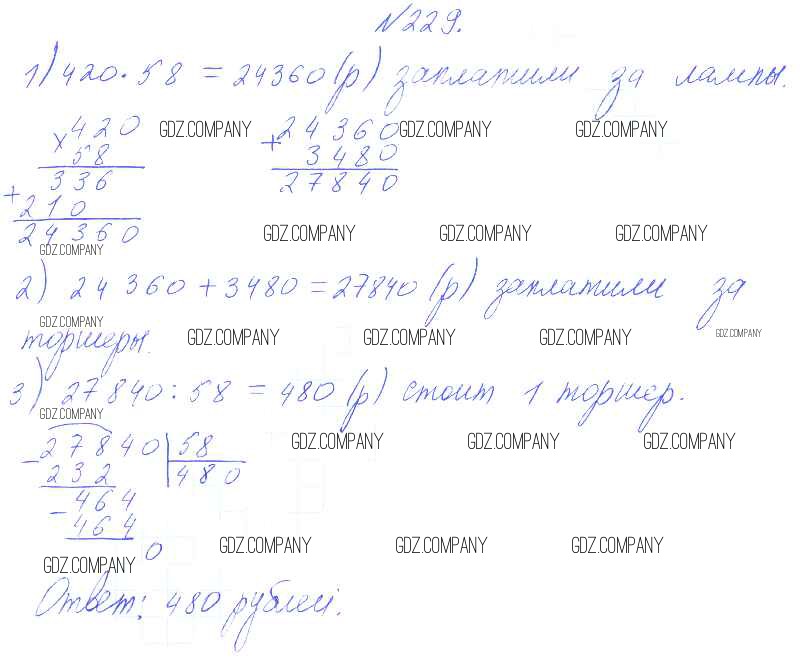 №229.
1) 420 · 58 = 24360 (р) заплатили за лампы.
× 420 GDZ.COMPANY + 24360 GDZ.COMPANY GDZ.COMPANY
58 3480
336 27840
+ 210
24360 GDZ.COMPANY GDZ.COMPANY GDZ.COMPANY
GDZ.COMPANY
2) 24360 + 3480 = 27840 (р) заплатили за
GDZ.COMPANY
торшеры. GDZ.COMPANY GDZ.COMPANY GDZ.COMPANY GDZ.COMPANY
3) 27840 : 58 = 480 (р) стоит 1 торшер.
GDZ.COMPANY
- 27840 58 GDZ.COMPANY GDZ.COMPANY GDZ.COMPANY
232 480
- 464
464
0 GDZ.COMPANY GDZ.COMPANY GDZ.COMPANY
GDZ.COMPANY
Ответ: 480 рублей.